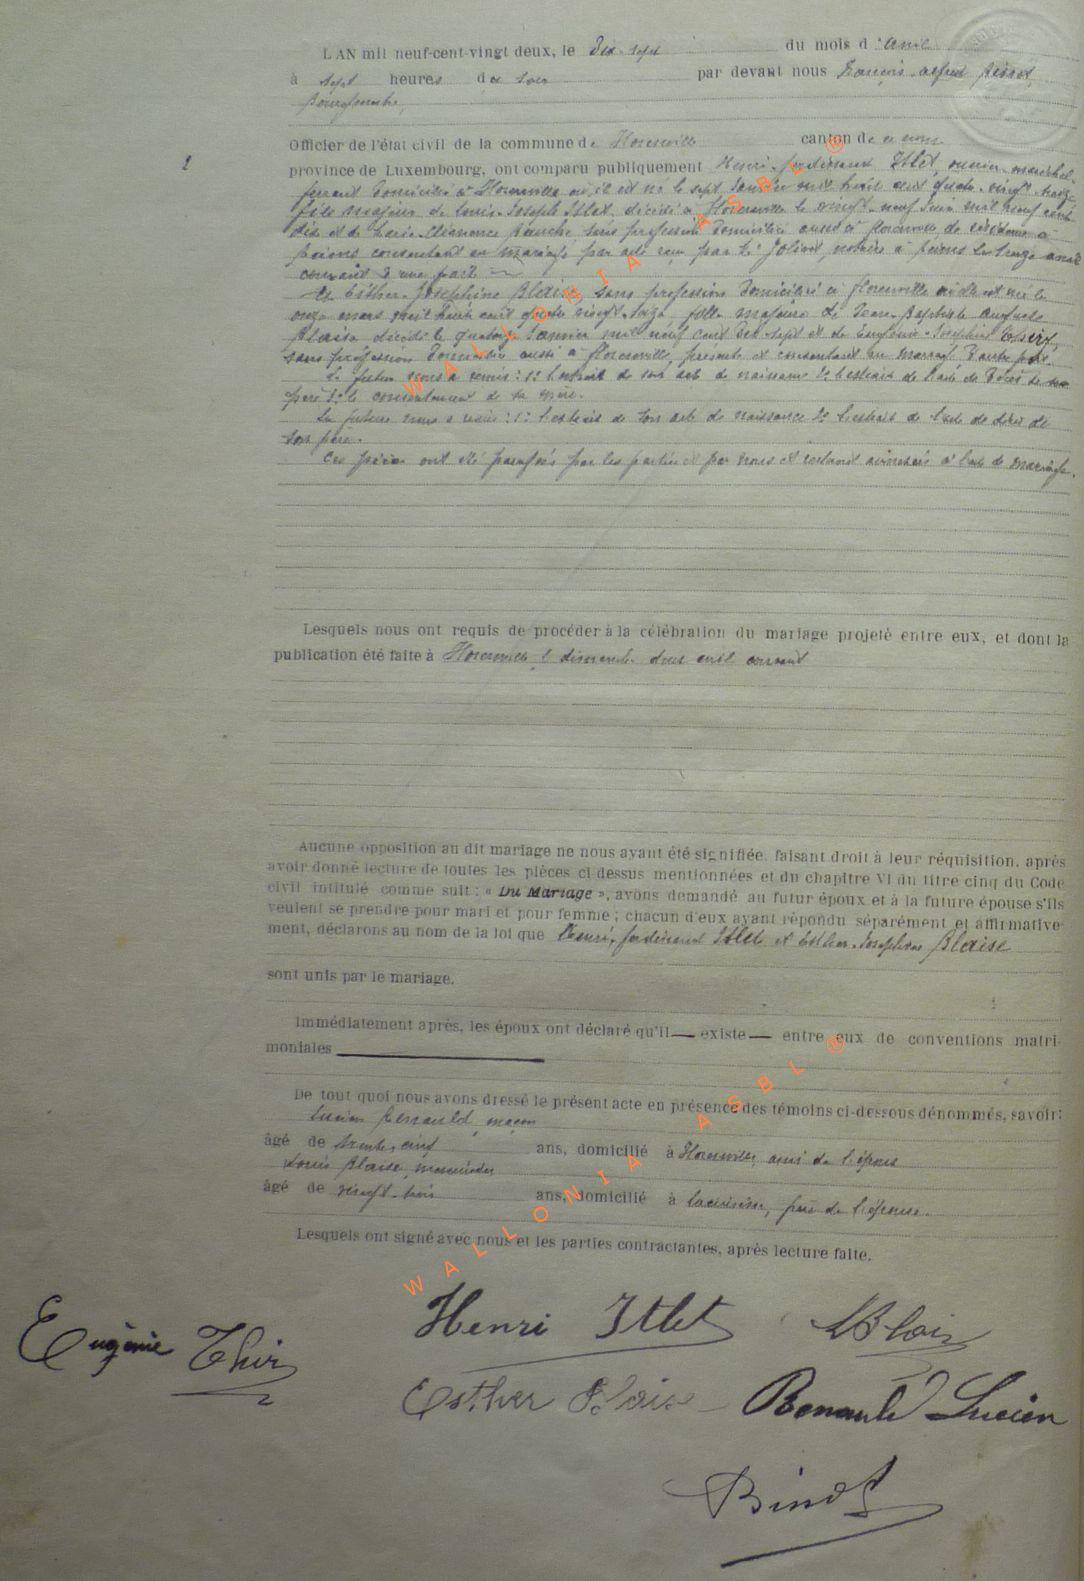 L'AN mil neuf-cent-vingt deux, le dix-sept du mois d'avril
à sept heures du soir par devant nous François-Alfred Bindot,
bourgmestre,
Officier de l'état civil de la commune de Florenville canton de ce nom
province de Luxembourg, ont comparu publiquement Henri-Ferdinand Itlet, ouvrier maréchal
ferrant domicilié à Florenville où il est né le sept mil huit cent quatre-vingt
fils majeur de Louis-Joseph Itlet, décédé à Florenville le vingt-neuf juin mil neuf cent
dix et de Marie sans profession domiciliée aussi à Florenville, de résidence à
consentant au mariage par acte reçu par Me notaire à le treize avril
courant d'une part
Et Esther-Joséphine Blaise, sans profession domiciliée à Florenville où elle est née le
onze mars mil huit cent quatre vingt-seize, fille majeure de Jean-Baptiste Auguste
Blaise décédé le quatorze janvier mil neuf cent dix sept et de Eugénie-Joséphine
sans profession domiciliée aussi à Florenville, présente et consentant au mariage d'autre part.
Le futur nous a remis : 1° l'extrait de son acte de naissance 2° l'extrait de l'acte de décès de son
père 3° le consentement de sa mère.
La future nous a remis : 1° l'extrait de son acte de naissance 2° l'extrait de l'acte de décès de
son père.
Ces pièces ont été paraphées par les parties et par nous et resteront annexées à l'acte de mariage.
Lesquels nous ont requis de procéder à la célébration du mariage projeté entre eux, et dont la
publication été faite à Florenville le dimanche deux avril courant
Aucune opposition au dit mariage ne nous ayant été signifiée, faisant droit à leur réquisition, après
avoir donné lecture de toutes les pièces ci-dessus mentionnées et du chapitre VI du titre cinq du Code
civil intitulé comme suit : « Du Mariage », avons demandé au futur époux et à la future épouse s'ils
veulent se prendre pour mari et pour femme ; chacun d'eux ayant répondu séparément et affirmative-
ment, déclarons au nom de la loi que Henri-Ferdinand Itlet et Esther-Joséphine Blaise
sont unis par le mariage.
Immédiatement après, les époux ont déclaré qu'il — existe — entre eux de conventions matri-
moniales
De tout quoi nous avons dressé le présent acte en présence des témoins ci-dessous dénommés, savoir:
Lucien Renauld, maçon
âgé de trente cinq ans, domicilié à Florenville, ami de l'époux
Louis Blaise, menuisier
âgé de vingt-trois ans, domicilié à Lacuisine, frère de l'épouse.
Lesquels ont signé avec nous et les parties contractantes, après lecture faite.
Henri Itlet LBlaise
Eugénie Thiry
Esther Blaise Renauld Lucien
Bindot
WALLONIA ASBL ®
WALLONIA ASBL ®